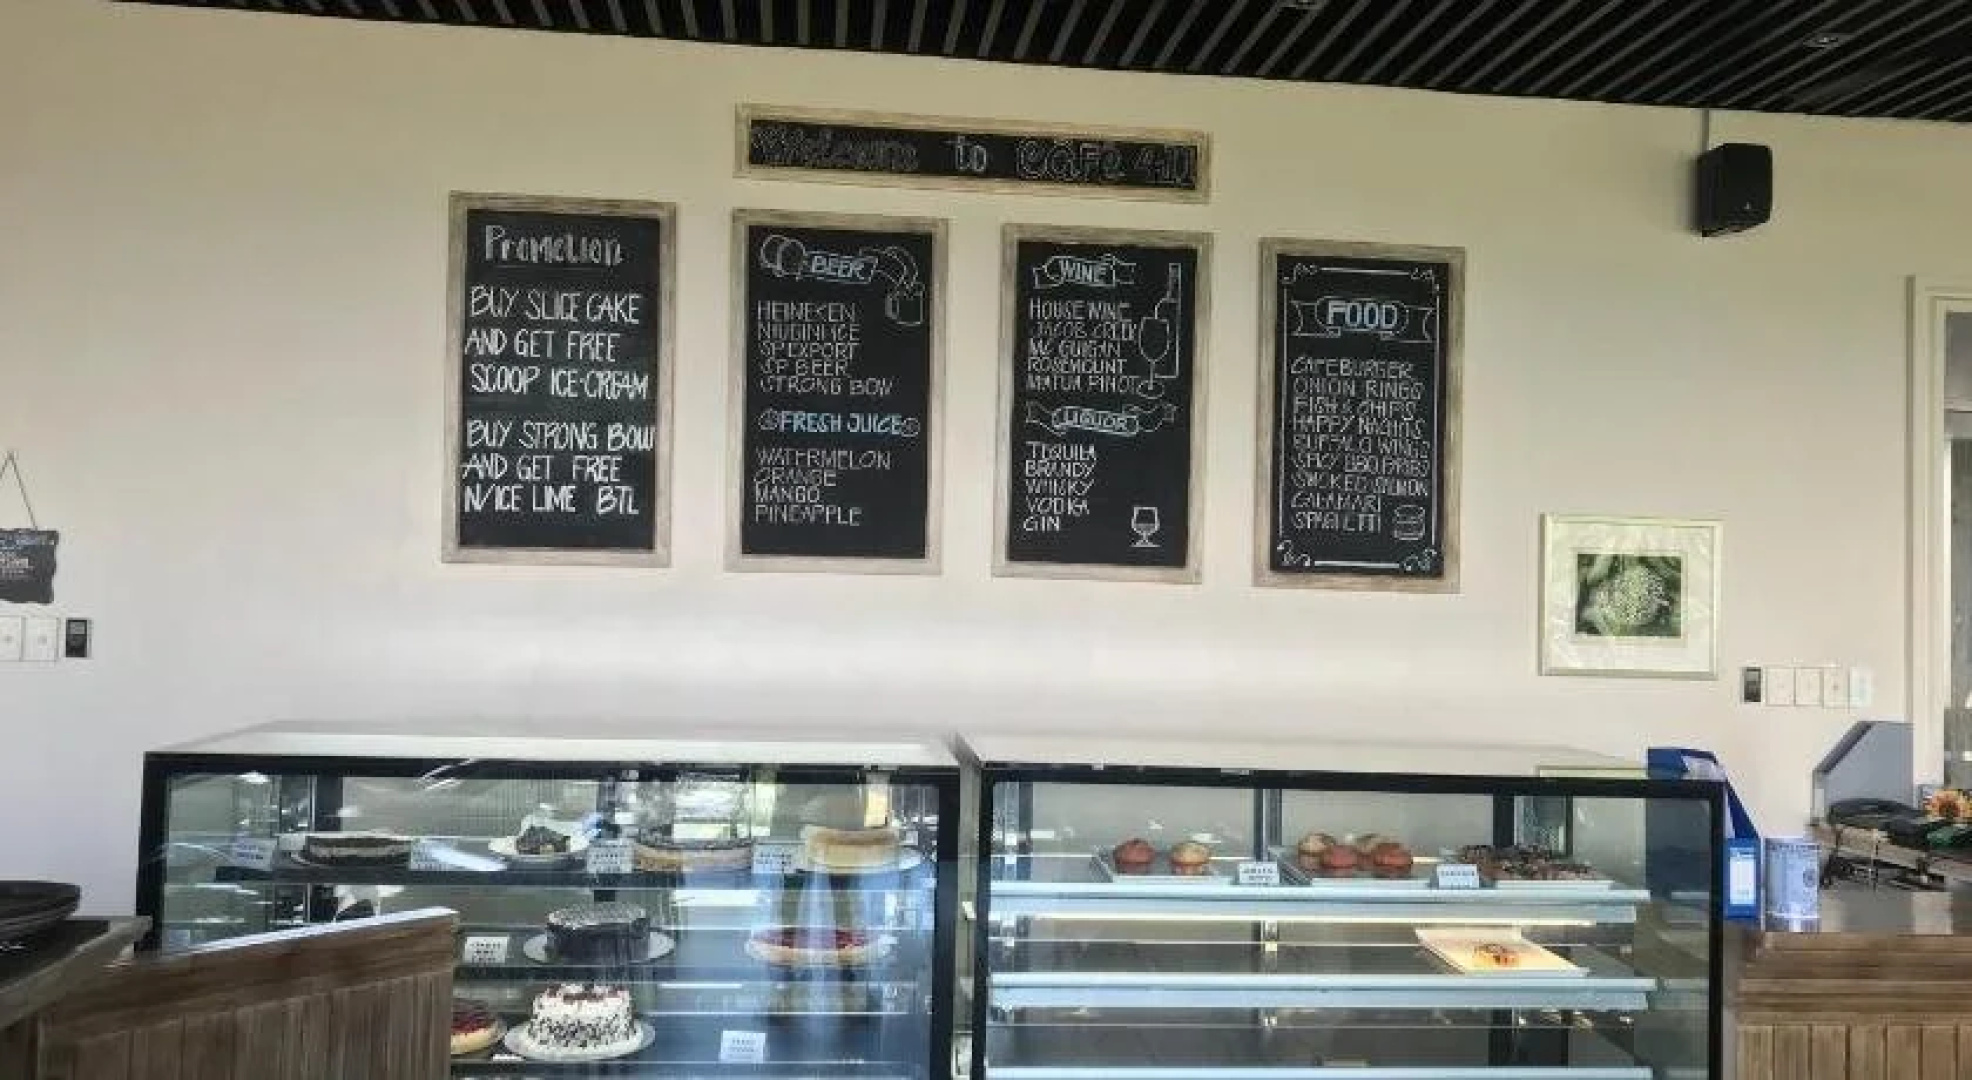 Welcome to CAFé 411
Promotion
BUY SLICE CAKE
AND GET FREE
SCOOP ICE-CREAM
BUY STRONG BOW
AND GET FREE
N/ICE LIME BTL
BEER
HEINEKEN
NIUGINI ICE
SP EXPORT
SP BEER
STRONG BOW
FRESH JUICE
WATERMELON
ORANGE
MANGO
PINEAPPLE
WINE
HOUSE WINE
JACOB CREEK
MC GUIGAN
ROSEMOUNT
MATUA PINOT
LIQUOR
TEQUILA
BRANDY
WHISKY
VODKA
GIN
FOOD
CAFEBURGER
ONION RINGS
FISH & CHIPS
HAPPY NACHOS
BUFFALO WINGS
SPICY BBQ RIBS
SMOKED SALMON
CALAMARI
SPAGHETTI